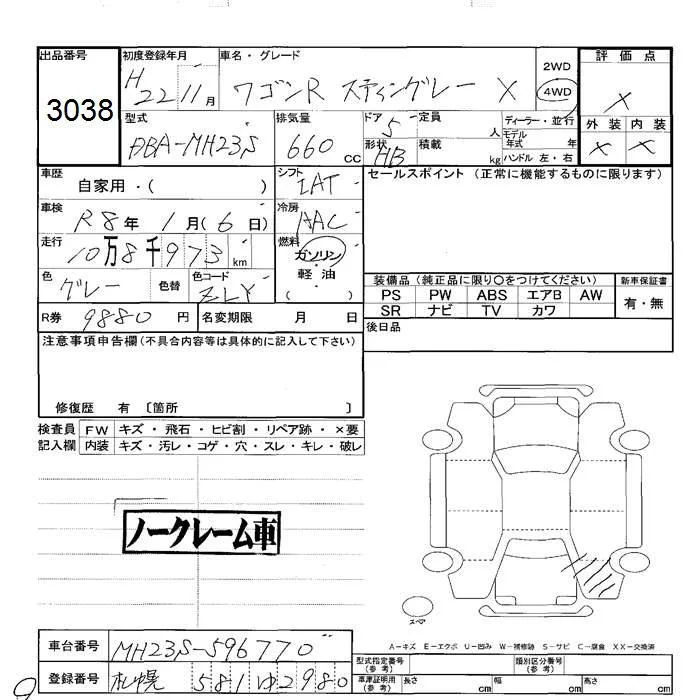 出品番号 初度登録年月 車名・グレード 評価点
3038 H 22 11月 ワゴンR スティングレー X 2WD 4WD X
型式 排気量 ドア 定員 ディーラー・並行 外装 内装
DBA-MH23S 660 cc 5 人 モデル 年式 年 X X
形状 HB 積載 kg ハンドル 左・右
車歴 自家用・( ) シフト IAT セールスポイント (正常に機能するものに限ります)
車検 R8年 1月(6日) 冷房 AAC
走行 10万8千973 km 燃料 ガソリン・軽油 ( )
色 グレー 色替 色コード ZLY 装備品 (純正品に限り○をつけてください) 新車保証書
PS PW ABS エアB AW 有・無
SR ナビ TV カワ
R券 9880 円 名変期限 月 日 後日品
注意事項申告欄(不具合内容等は具体的に記入して下さい)
修復歴 有 〔箇所 〕
検査員 FW キズ・飛石・ヒビ割・リペア跡・×要
記入欄 内装 キズ・汚レ・コゲ・穴・スレ・キレ・破レ
ノークレーム車
スペア
A-キズ E-エクボ U-凹み W-補修跡 S-サビ C-腐食 XX-交換済
車台番号 MH23S-596770
型式指定番号 (参考) 類別区分番号 (参考)
登録番号 札幌 581 ゆ2980
車庫証明用 (参考) 長さ cm 幅 cm 高さ cm